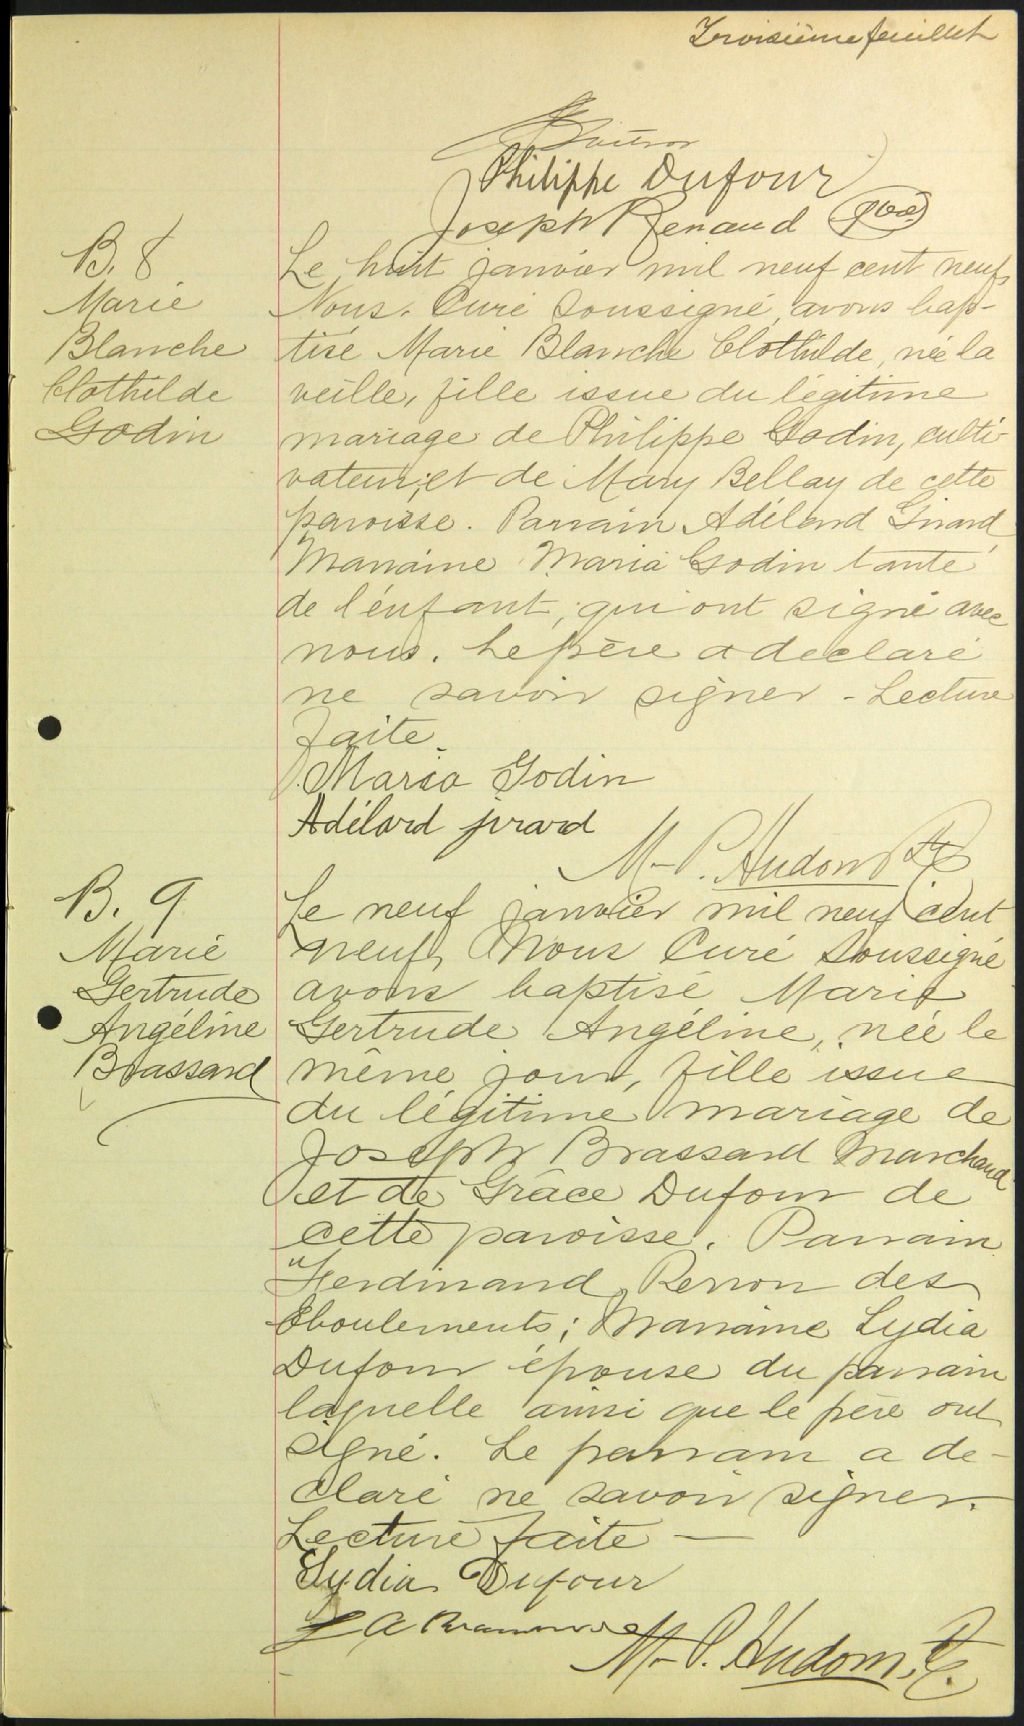 Troisième feuillet
Philippe Dufour
Joseph Renaud ptre
B. 8
Marie
Blanche
Clothilde
Godin
Le huit janvier mil neuf cent neuf,
Nous, Curé soussigné, avons bap-
tisé Marie Blanche Clothilde, née la
veille, fille issue du légitime
mariage de Philippe Godin, culti-
vateur, et de Mary Bellay de cette
paroisse. Parrain Adélard Girard,
Marraine Maria Godin tante
de l'enfant, qui ont signé avec
nous. Le père a declaré
ne savoir signer - Lecture
faite.
Maria Godin
Adélard jirard
M.-P. Hudon Ptre
B. 9
Marie
Gertrude
Angéline
Brassard
Le neuf janvier mil neuf cent
neuf, Nous Curé soussigné
avons baptisé Marie
Gertrude Angéline, née le
même jour, fille issue
du légitime mariage de
Joseph Brassard Marchand
et de Grâce Dufour de
cette paroisse. Parrain
Ferdinand Perron des
Eboulements; Marraine Lydia
Dufour épouse du parrain
laquelle ainsi que le père ont
signé. Le parrain a de-
claré ne savoir signer.
Lecture faite —
Lydia Dufour
M.-P. Hudon, Ptre.